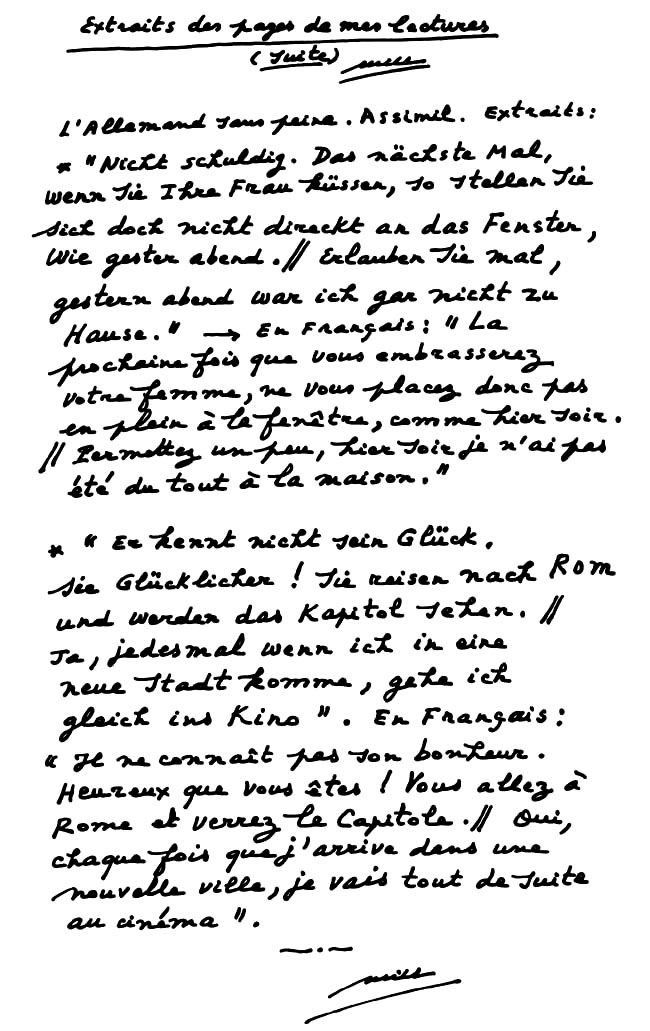 Extraits des pages de mes lectures
(suite)
L'Allemand sans peine. Assimil. Extraits:
* "Nicht schuldig. Das nächste Mal,
wenn Sie Ihre Frau küssen, so stellen Sie
sich doch nicht direckt an das Fenster,
Wie gester abend. // Erlauben Sie mal,
gestern abend war ich gar nicht zu
Hause." → En Français: "La
prochaine fois que vous embrasserez
votre femme, ne vous placez donc pas
en plein à la fenêtre, comme hier soir.
// Permettez un peu, hier soir je n'ai pas
été du tout à la maison."
* "Er kennt nicht sein Glück.
Sie Glücklicher! Sie reisen nach Rom
und werden das Kapitol sehen. //
Ja, jedesmal wenn ich in eine
neue Stadt komme, gehe ich
gleich ins Kino". En Français:
"Il ne connaît pas son bonheur.
Heureux que vous êtes! Vous allez à
Rome et verrez le Capitole. // Oui,
chaque fois que j'arrive dans une
nouvelle ville, je vais tout de suite
au cinéma".